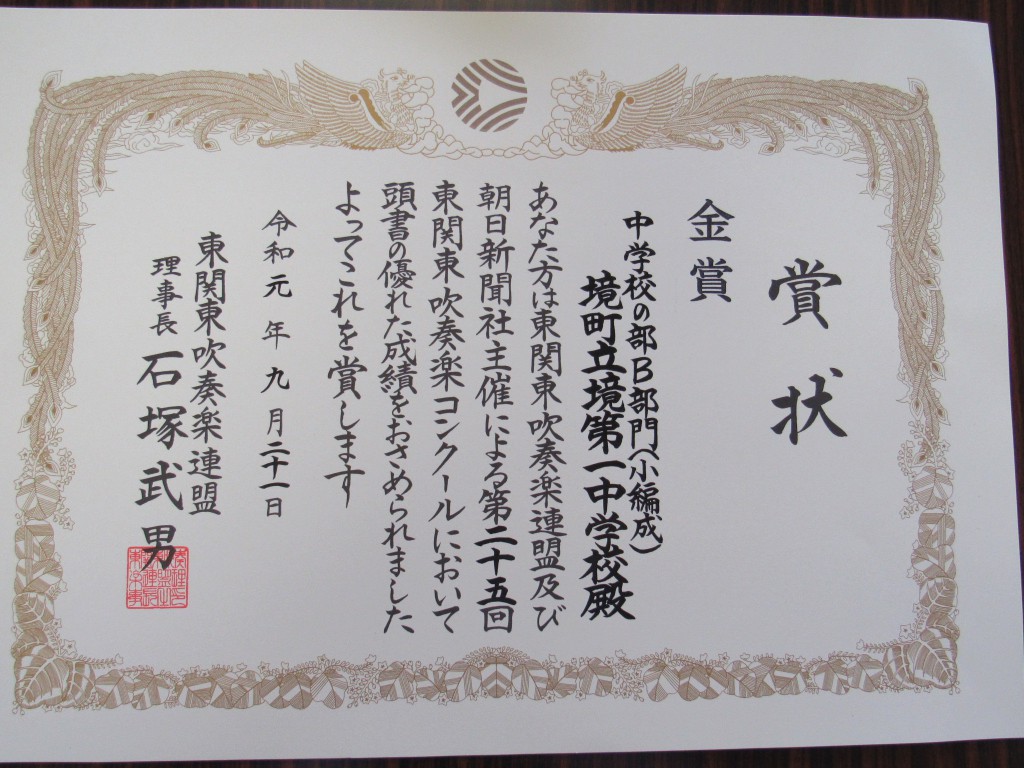 賞状
金賞
中学校の部B部門(小編成)
境町立境第一中学校殿
あなた方は東関東吹奏楽連盟及び
朝日新聞社主催による第二十五回
東関東吹奏楽コンクールにおいて
頭書の優れた成績をおさめられました
よってこれを賞します
令和元年九月二十一日
東関東吹奏楽連盟
理事長 石塚武男